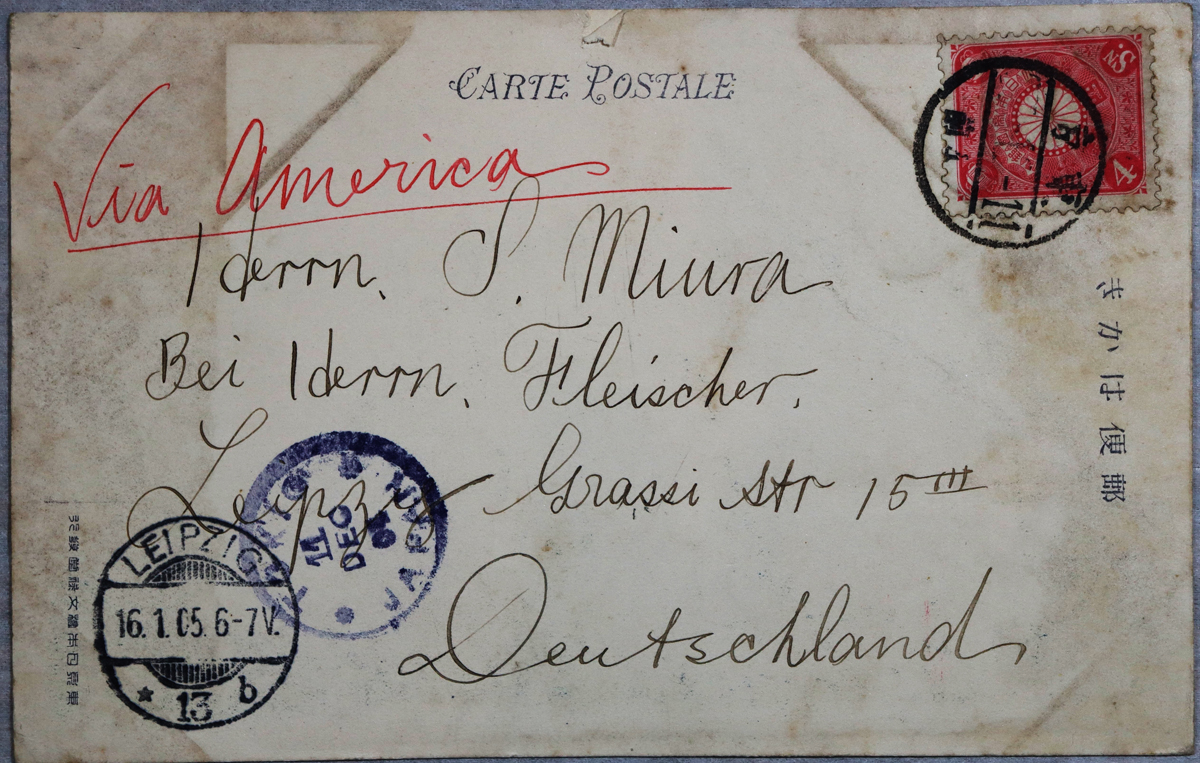 CARTE POSTALE
Via America
Herrn. S. Miura
Bei Herrn. Fleischer.
Leipzig Grassi Str 15 III
Deutschland
郵便はかき
4 SN.
LEIPZIG
16.1.05.6-7V.
* 13 b
11
DEC
04
JAPAN